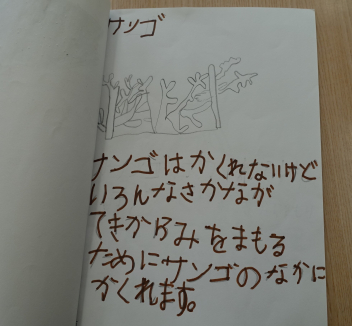 サンゴ
サンゴはかくれないけど
いろんなさかなが
てきからみをまもる
ためにサンゴのなかに
かくれます。